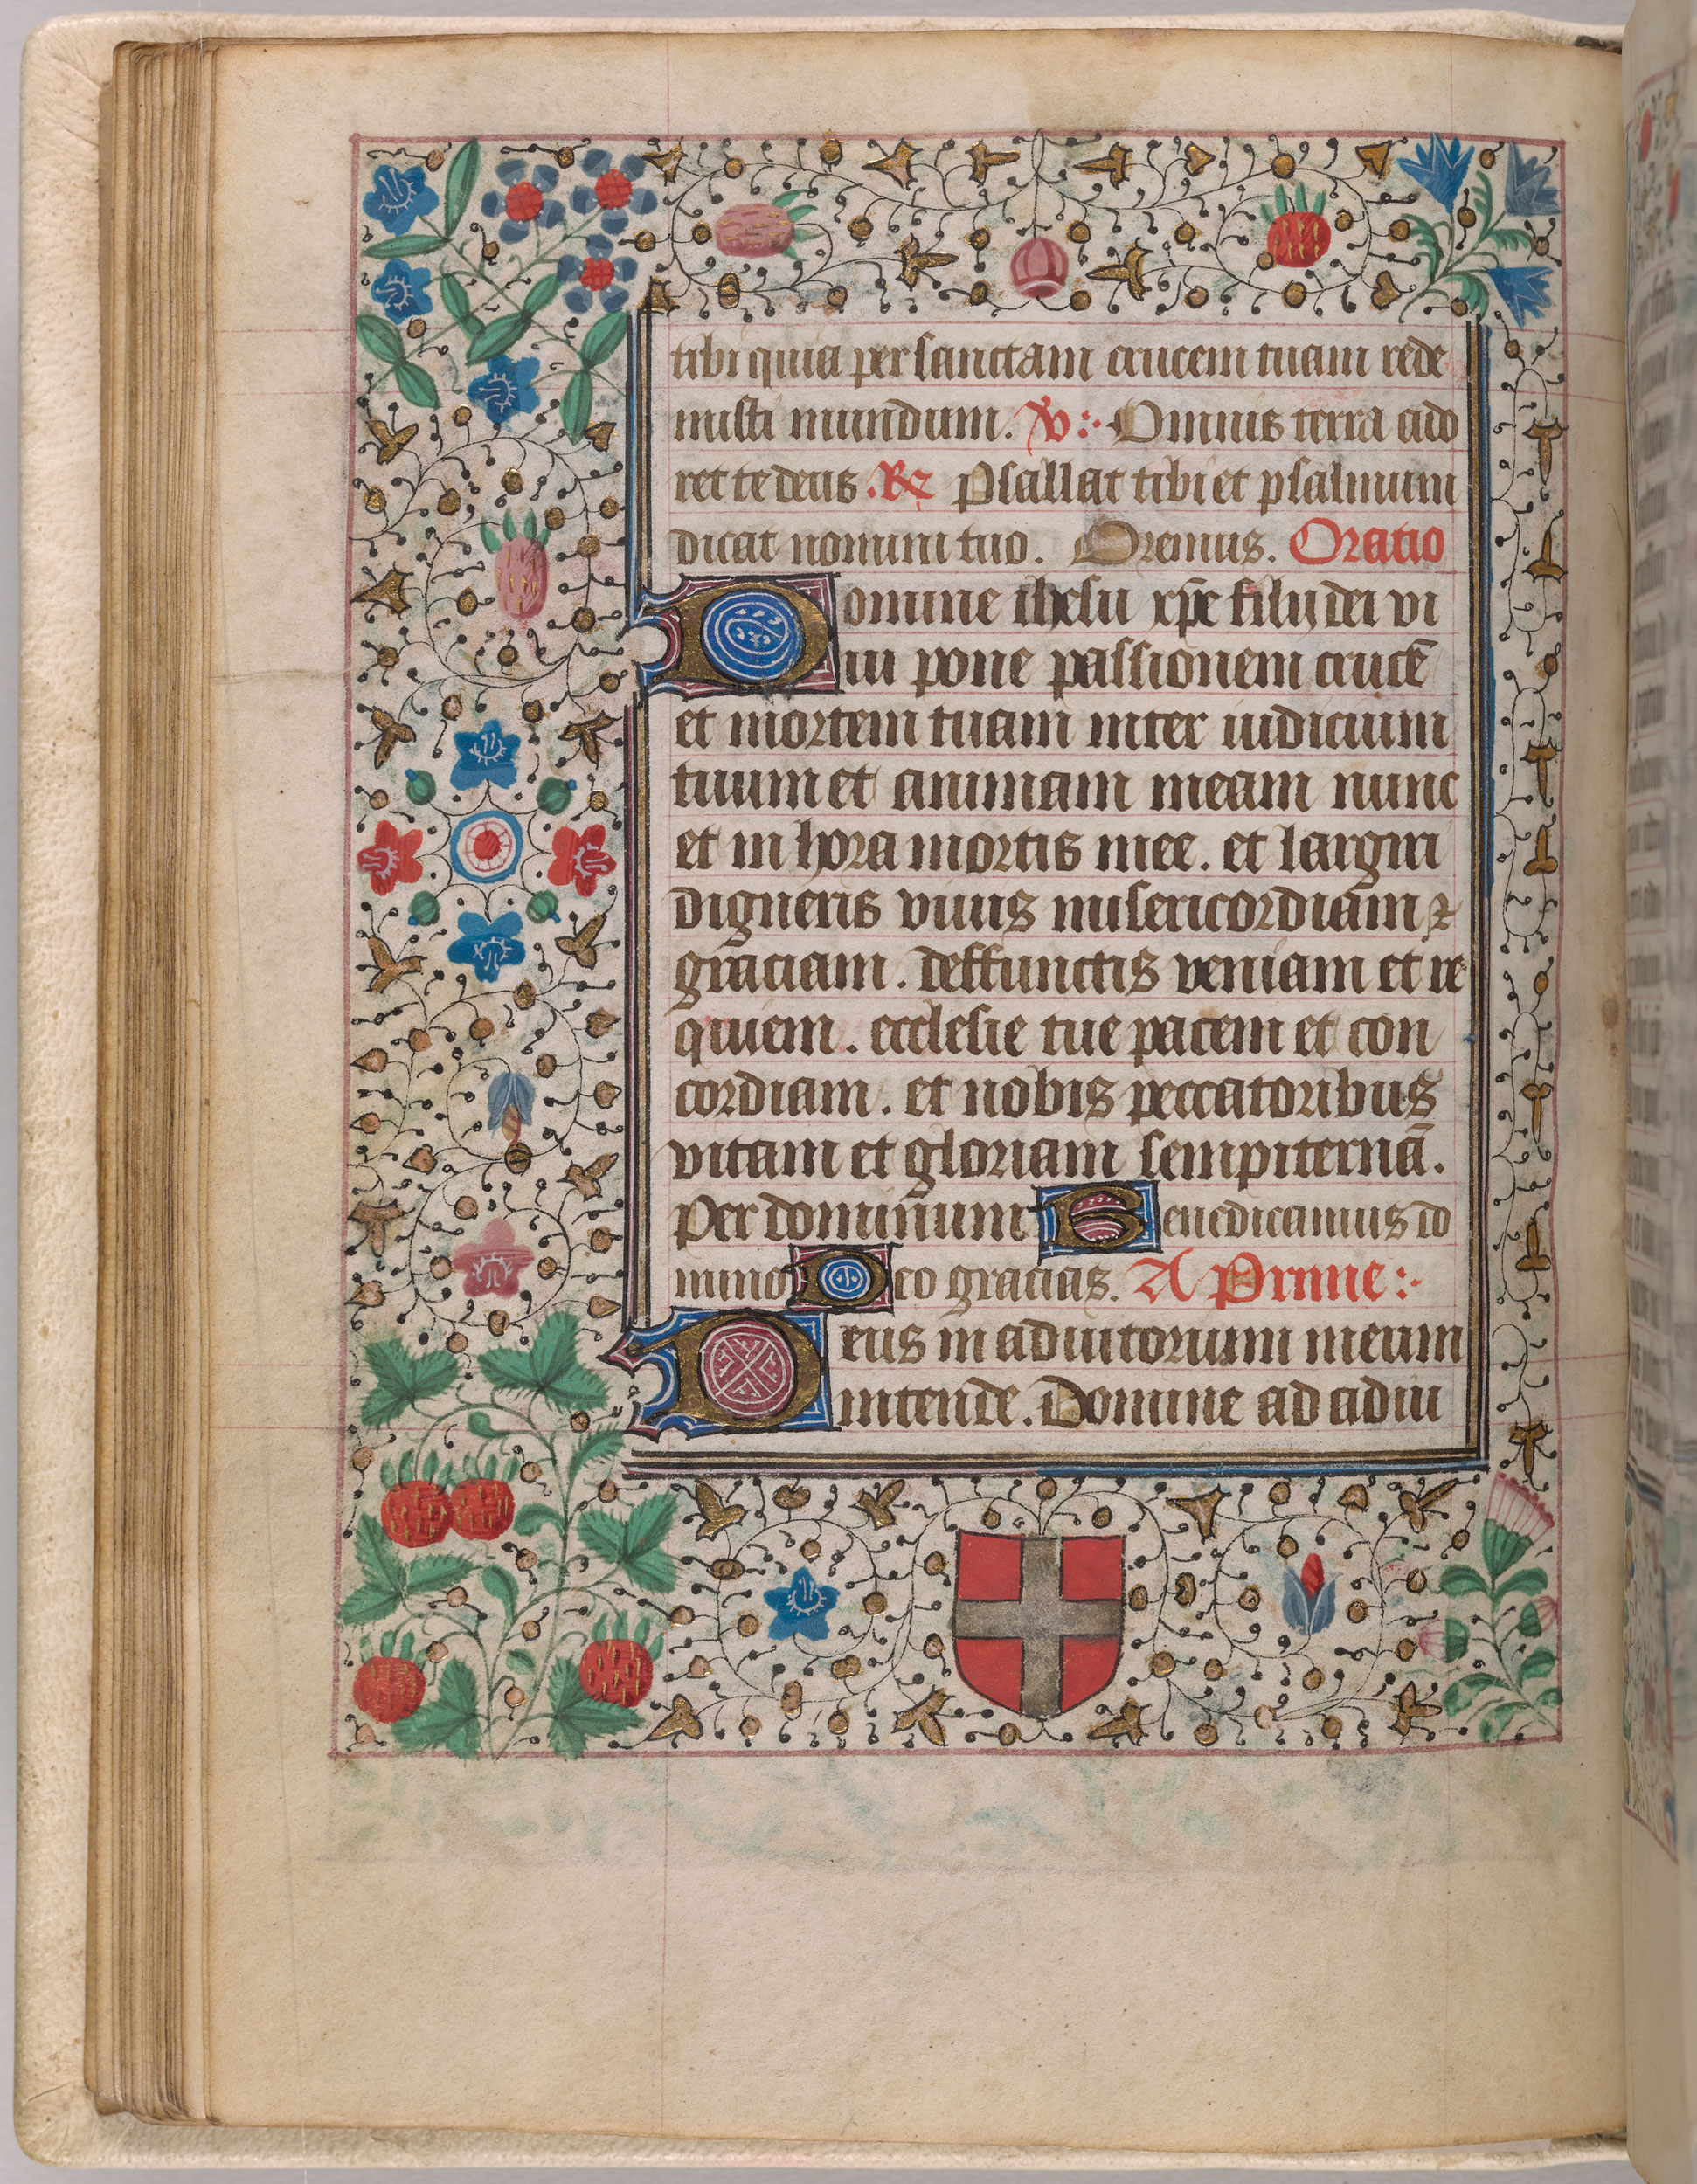 tibi quia per sanctam crucem tuam rede
misti mundum. V Omnis terra ado
ret te deus. R Psallat tibi et psalmum
dicat nomini tuo. Oremus. Oratio
Domine ihesu xp̄e filij dei vi
ui pone passionem crucē
et mortem tuam inter iudicium
tuum et animam meam nunc
et in hora mortis mee. et largiri
digneris viuis misericordiam ⁊
graciam. deffunctis veniam et re
quiem. ecclesie tue pacem et con
cordiam. et nobis peccatoribus
vitam et gloriam sempiternā.
Per dominum Benedicamus do
mino Deo gracias. A Prime
Deus in adiutorium meum
intende. Domine ad adiu